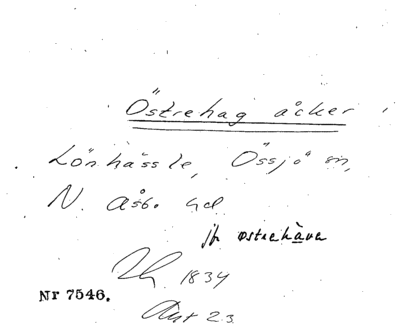 Östrehag åcker
Lönhässle, Össjö sn,
N. Åsbo hd
jfr østrehàva
1839
Nr 7546.
Akt 23